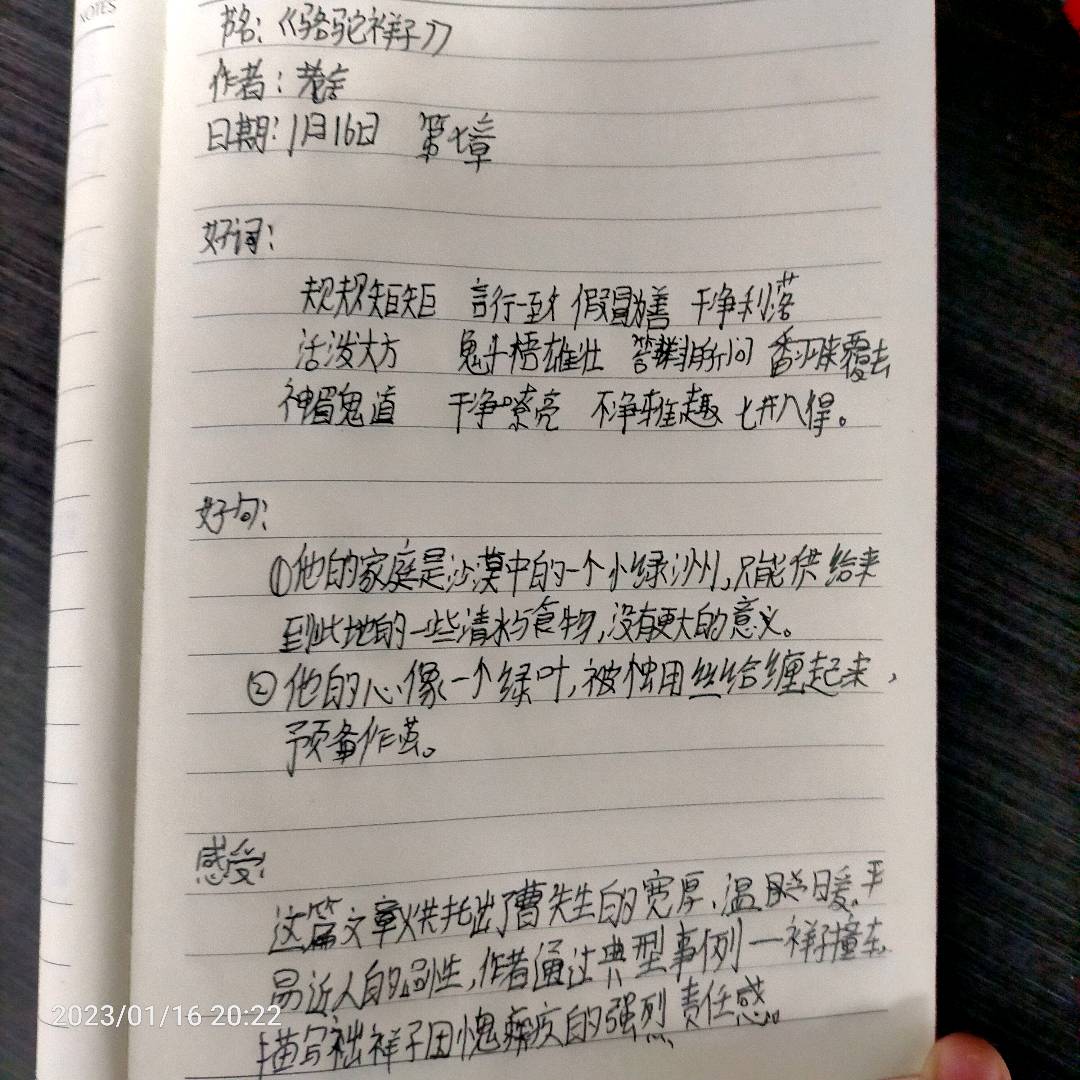 NOTES
书名：《骆驼祥子》
作者：老舍
日期：1月16日 第七章
好词：
规规矩矩 言行一致 假冒为善 干净利落
活泼大方 魁梧雄壮 答非所问 翻来覆去
神眉鬼道 干净嘹亮 不净 趣 七 八得。
好句：
①他的家庭是沙漠中的一个小绿沙州，只能供给来
到此地的一些清水与食物，没有更大的意义。
②他的心像一个绿叶，被 用丝给缠起来，
预备作茧。
感受：
这篇文章烘托出了曹先生的宽厚、温暖、平
易近人的 性，作者通过典型事例一祥子撞车。
描写 祥子因愧疚的强烈责任感。
2023/01/16 20:22